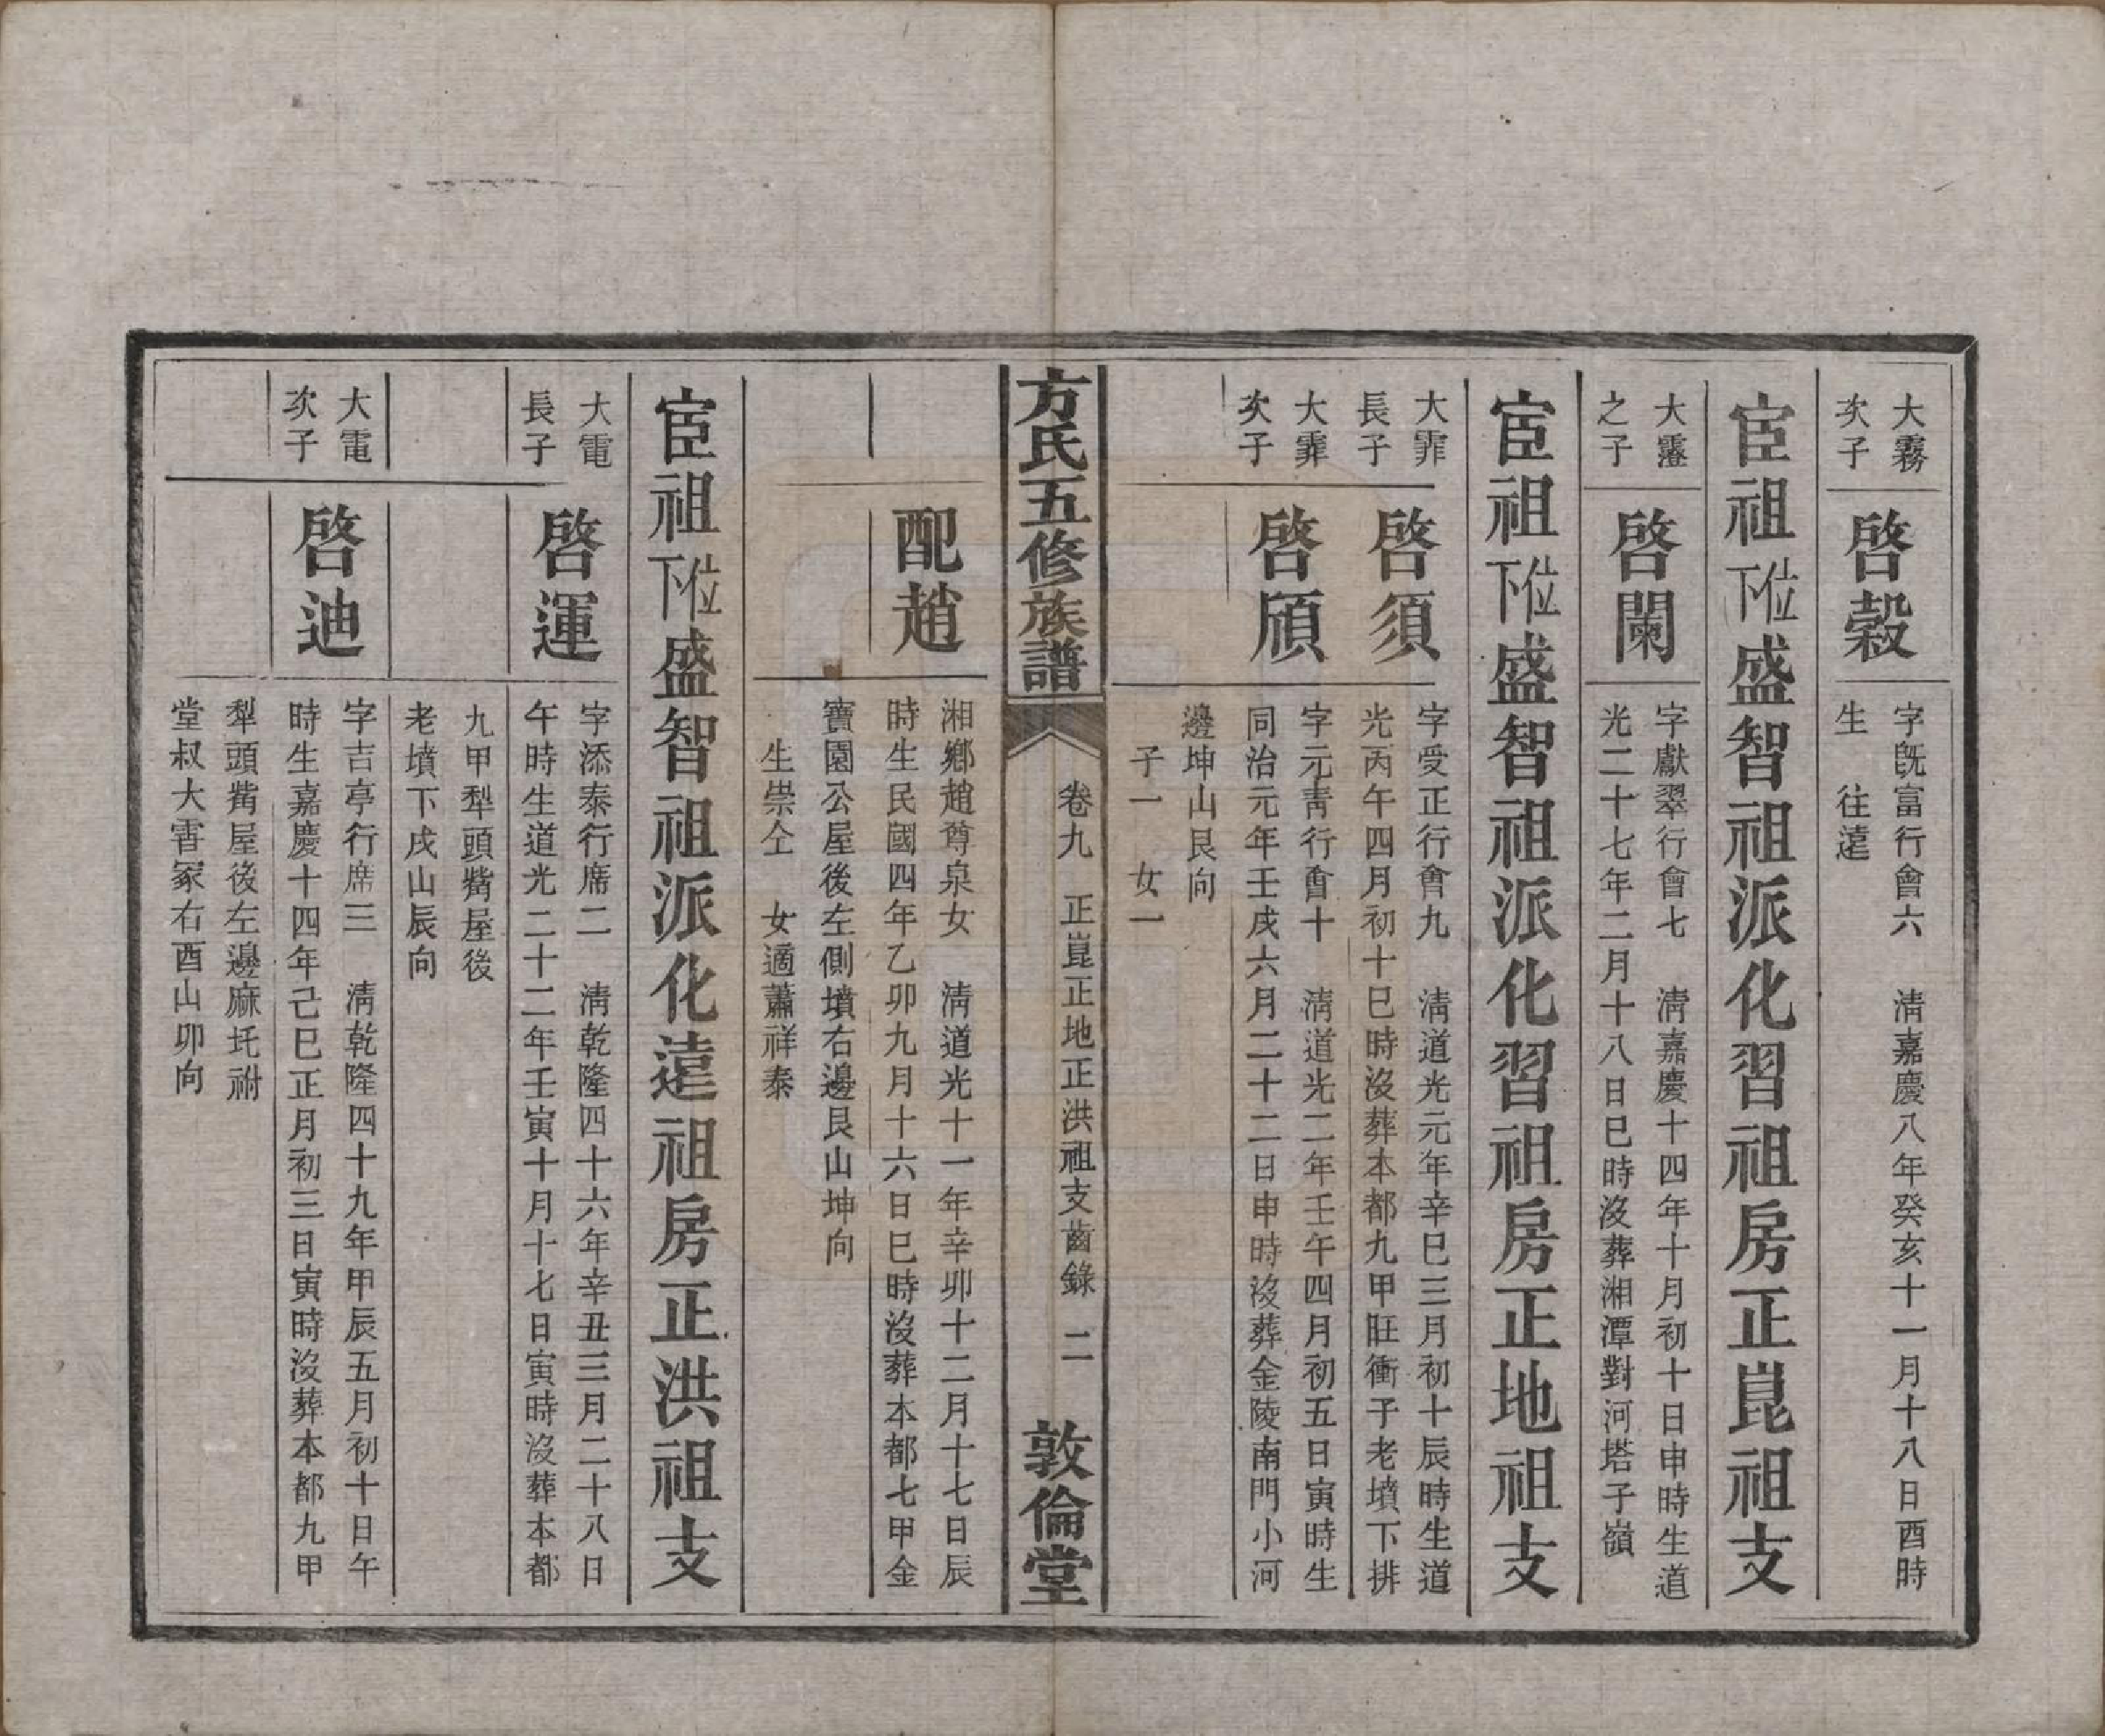 大霧
次子
啓穀
字旣富行會六　淸嘉慶八年癸亥十一月十八日酉時
生　往遠
宦祖位下盛智祖派化習祖房正崑祖支
大𩆜
之子
啓闌
字獻翠行會七　淸嘉慶十四年十月初十日申時生道
光二十七年二月十八日巳時沒葬湘潭對河塔子嶺
宦祖位下盛智祖派化習祖房正地祖支
大霏
長子
啓須
字受正行會九　淸道光元年辛巳三月初十辰時生道
光丙午四月初十巳時沒葬本都九甲旺衝子老墳下排
大霏
次子
啓頎
字元靑行會十　淸道光二年壬午四月初五日寅時生
同治元年壬戌六月二十二日申時沒葬金陵南門小河
邊坤山艮向
子一　女一
方氏五修族譜
卷九　正崑正地正洪祖支齒錄　二
敦倫堂
配趙
湘鄉趙尊泉女　淸道光十一年辛卯十二月十七日辰
時生民國四年乙卯九月十六日巳時沒葬本都七甲金
寶園公屋後左側墳右邊艮山坤向
生崇仝　女適蕭祥泰
宦祖位下盛智祖派化遠祖房正洪祖支
大電
長子
啓運
字添泰行席二　淸乾隆四十六年辛丑三月二十八日
午時生道光二十二年壬寅十月十七日寅時沒葬本都
九甲犁頭觜屋後
老墳下戌山辰向
大電
次子
啓迪
字吉亭行席三　淸乾隆四十九年甲辰五月初十日午
時生嘉慶十四年己巳正月初三日寅時沒葬本都九甲
犁頭觜屋後左邊麻圫祔
堂叔大霅冢右酉山卯向